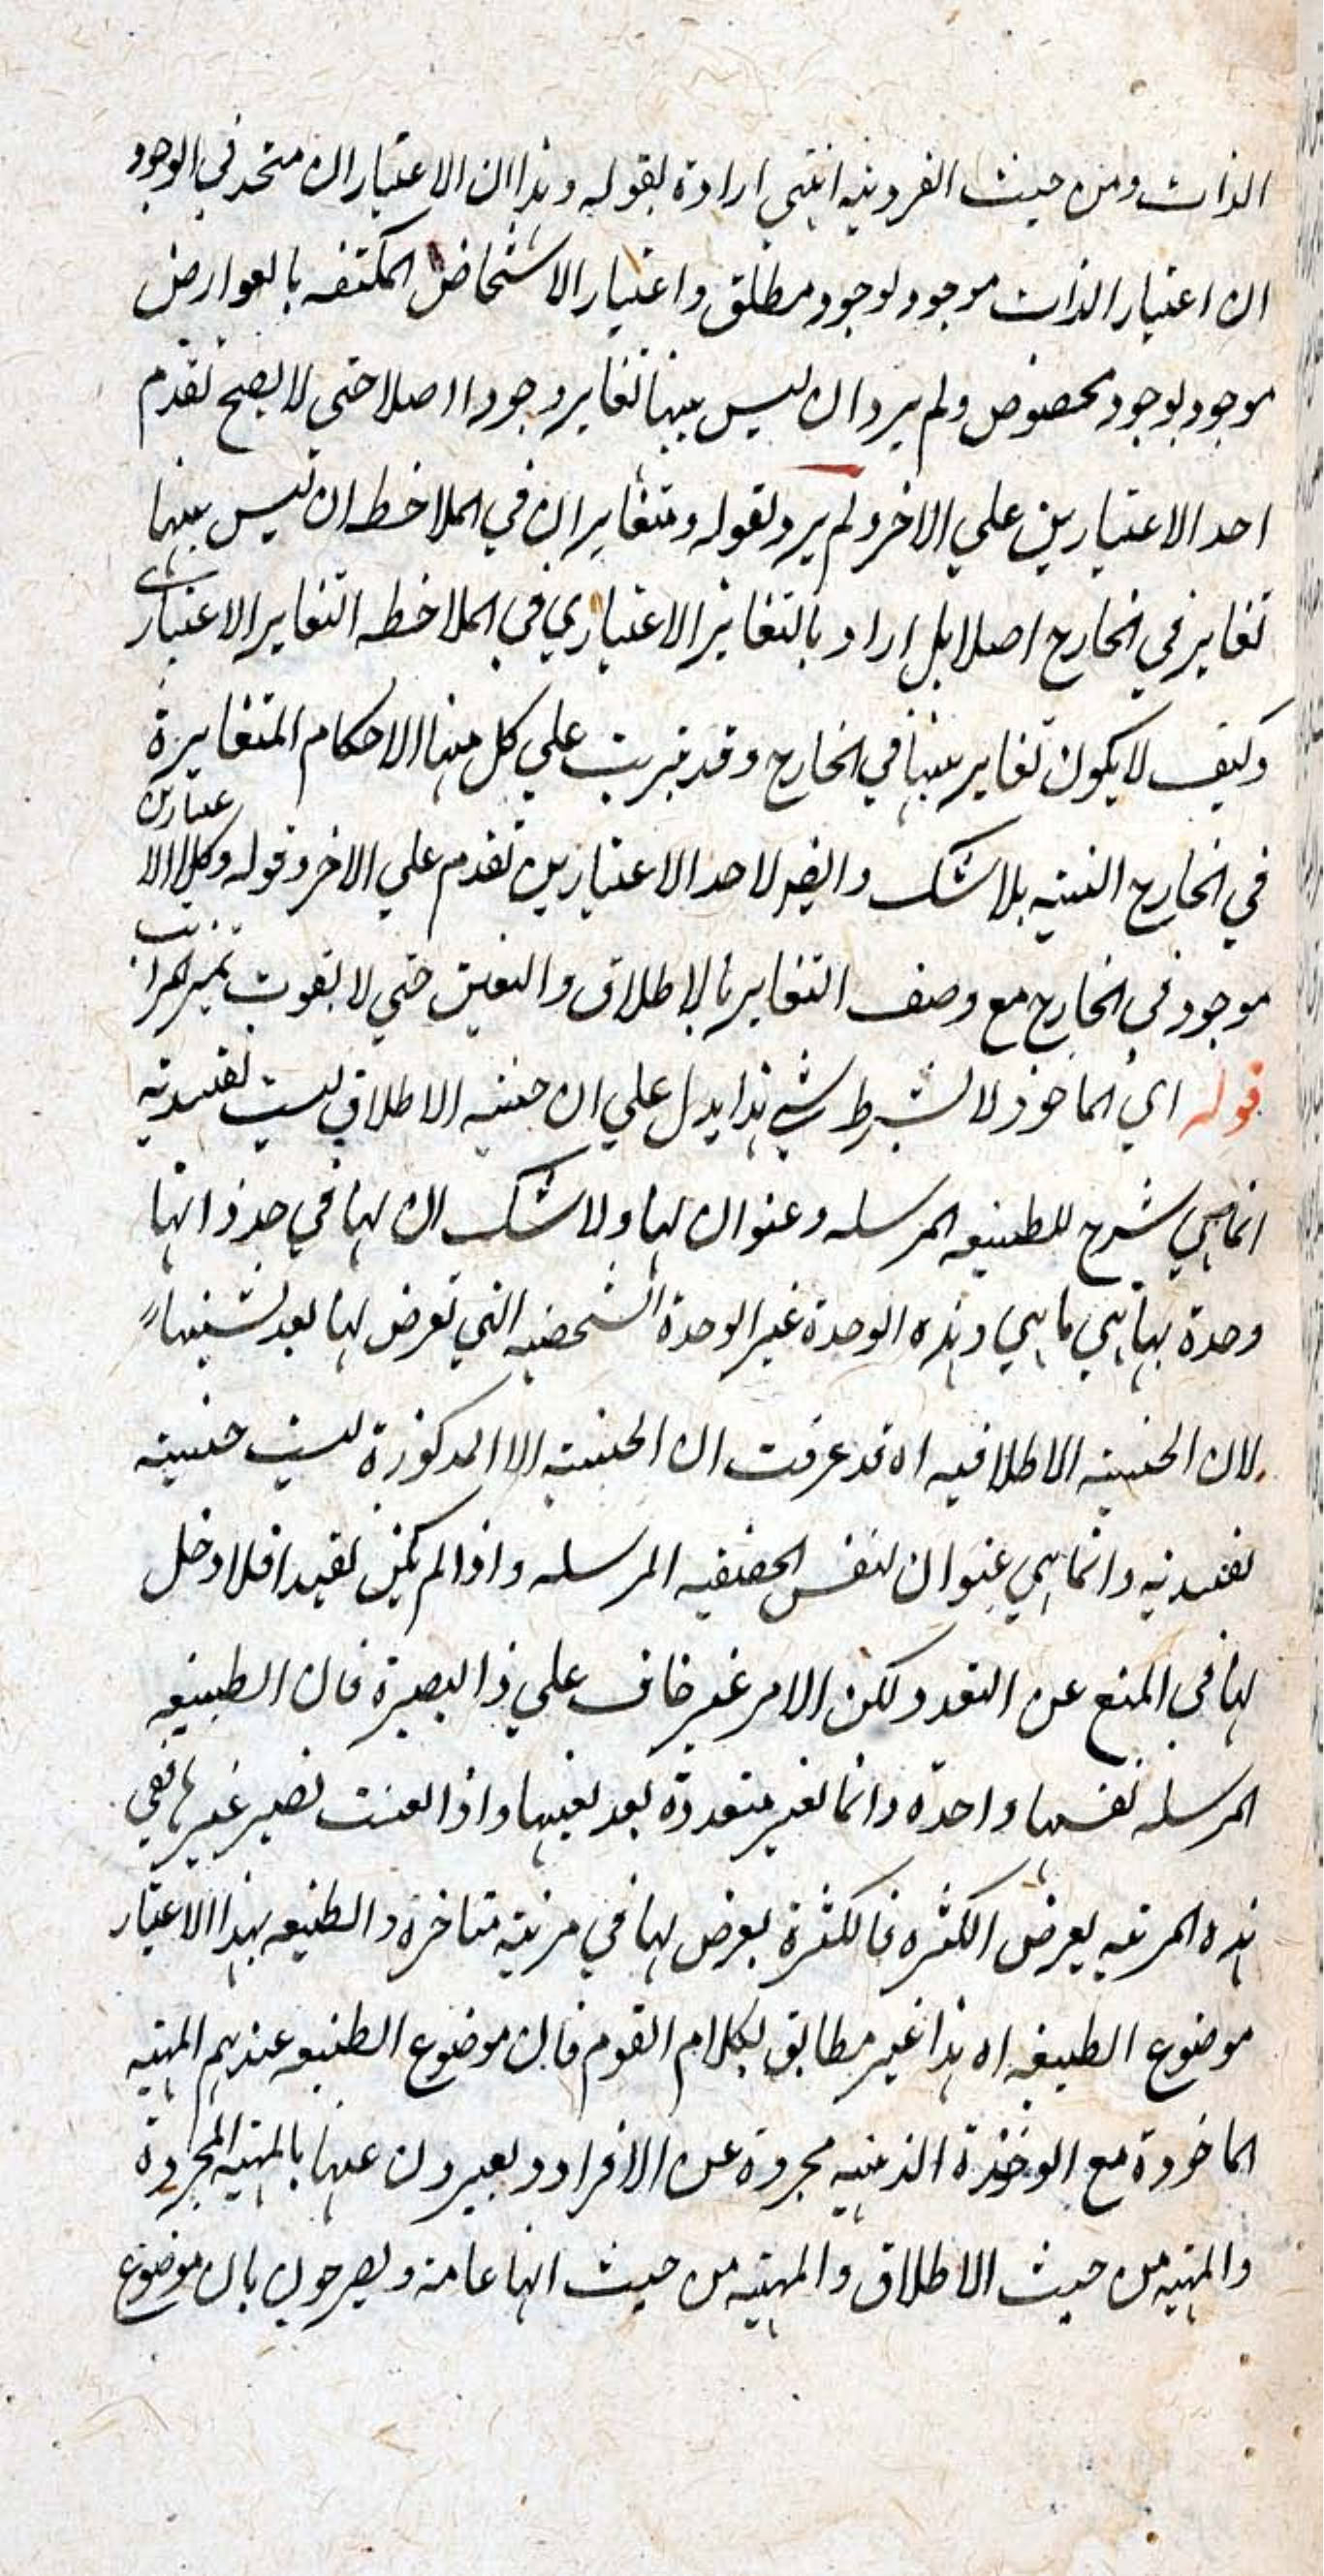 الذات ومن حيث الفردية انتهى ارادة بقوله وهذا ان الاعتباران متحد في الوجود
ان اعتبار الذات موجود لوجود مطلق واعتبار الاشخاص المكتنفه بالعوارض
موجود بوجود مخصوص ولم يرد ان ليس بينهما تغاير وجودا اصلا حتى لا يصح تقدم
احد الاعتبارين علي الاخر ولم يرد بقوله ومتغايران في الملاحظه ان ليس بينهما
تغاير في الخارج اصلا بل اراد بالتغاير الاعتباري في الملاحظه التغاير الاعتباري
وكيف لا يكون تغاير بينهما في الخارج وقد تترتب علي كل منهما الاحكام المتغايرة
في الخارج البتيه بلا شك وايضا لاحد الاعتبارين تقدم علي الاخر وقوله وكلا الاعتبارين
موجود في الخارج مع وصف التغاير بالاطلاق والتعين حتي لا يفوت تميز المراتب
قوله اي الماخوذ لا بشرط شي هذا يدل علي ان حيثيه الاطلاق ليست تقييديه
انما هي شرح للطبيعه المرسله وعنوان لها ولا شك ان لها في حد ذاتها
وحدة بها هي ما هي وهذه الوحدة غير الوحدة الشخصيه التي تعرض لها بعد تشخصها
لان الحيثيه الاطلاقيه اه قد عرفت ان الحيثيه المذكورة ليست حيثيته
تقييديه وانما هي عنوان لنفس الحقيقيه المرسله واذا لم يكن تقييدا فلا دخل
لها في المنع عن التعدد ولكن الامر غير خاف علي ذا البصيرة فان الطبيعه
المرسله نفسها واحدة وانما تصير متعددة بعد تعينها واذا تعينت تصير غيرها ففي
هذه المرتبه يعرض الكثره فالكثرة يعرض لها في مرتبه متاخرة والطبيعه بهذا الاعتبار
موضوع الطبيعه اه هذا غير مطابق لكلام القوم فان موضوع الطبيعه عندهم المهيه
الماخوذة مع الوحدة الذهنيه مجردة عن الافراد ويعبرون عنها بالمهيه المجردة
والمهيه من حيث الاطلاق والمهيه من حيث انها عامه ويصرحون بان موضوع